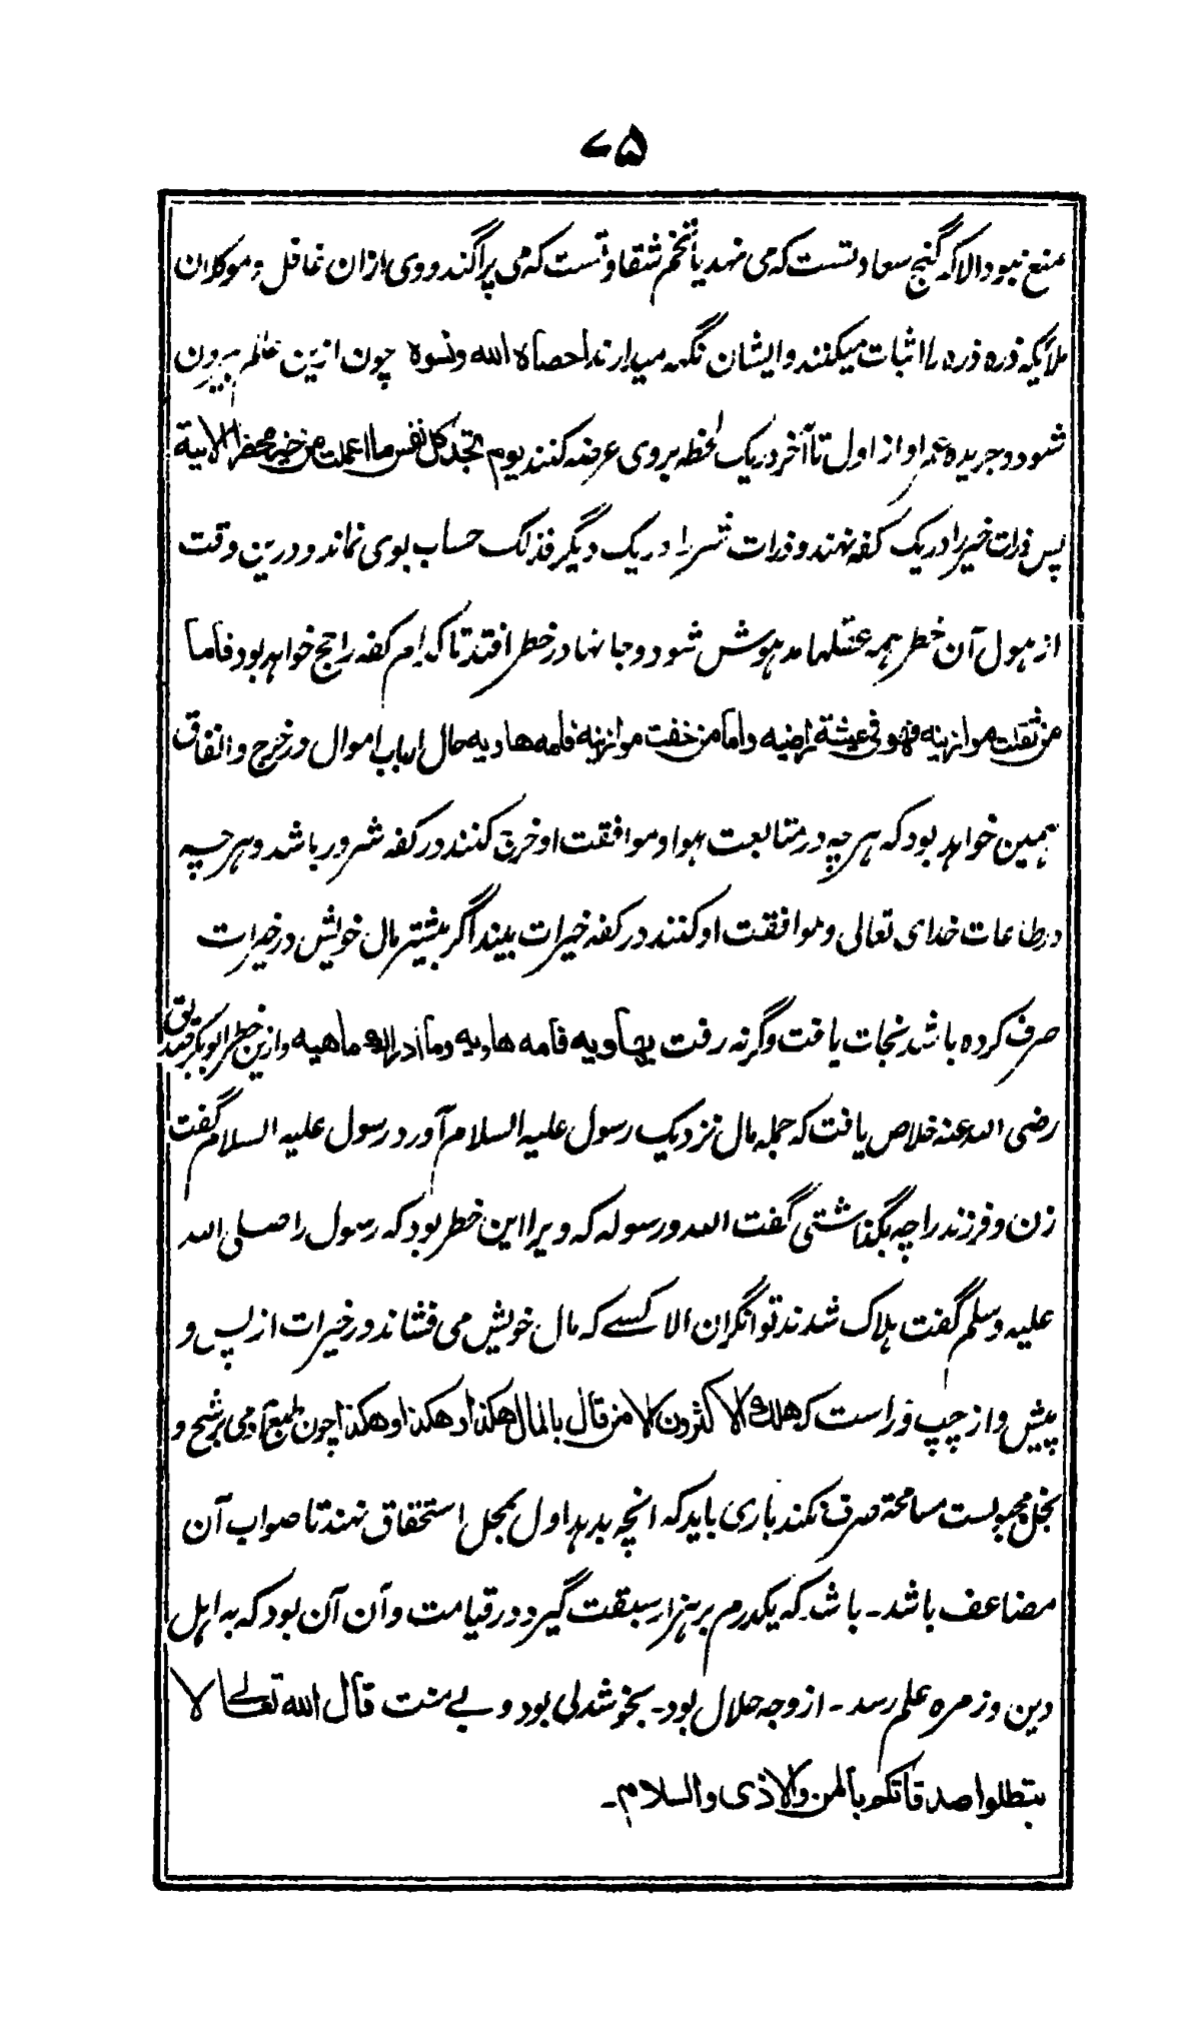 ۷۵
منع نبود الا که گنج سعادتست که می نهد یا تخم شقاوتست که می پراگند و وی ازان غافل و موکلان
ملایکه ذره ذره را اثبات میکنند و ایشان نگهه میدارند احصاه الله ونسوه چون ازین عالم بیرون
شود و جریده عمر او از اول تا آخر در یک لحظه بروی عرضه کنند یوم تجد کل نفس ما اعملت من خیر محضرا الایة
پس ذرات خیر را در یک کفه نهند و ذرات شر را در یک دیگر فذلک حساب بوی نماند و درین وقت
از هول آن خطر همه عقلها مدهوش شود و جانها در خطر افتد تا کدام کفه راجح خواهد بود فاما
من ثقلت موازینه فهو فی عیشة راضیه واما من خفت موازینه فامه هاویه حال ارباب اموال در خرج و انفاق
همین خواهد بود که هر چه در متابعت هوا و موافقت او خرج کنند در کفه شرور باشد و هر چه
در طاعات خدای تعالی و موافقت او کنند در کفه خیرات بیند اگر بیشتر مال خویش در خیرات
صرف کرده باشد نجات یافت و گرنه رفت بهاویه فامه هاویه وما ادراك ماهیه و ازین خطر ابوبکر صدیق
رضی الله عنه خلاص یافت که جمله مال نزدیک رسول علیه السلام آورد رسول علیه السلام گفت
زن و فرزند را چه بگذاشتی گفت الله و رسوله که ویرا این خطر بود که رسول را صلی الله
علیه وسلم گفت هلاک شدند توانگران الا کسے که مال خویش می فشاند در خیرات از پس و
پیش و از چپ و راست که هلك الاکثرون الا من قال بالمال هکذا و هکذا و هکذا چون طبع آدمی بر شح و
بخل مجبولست مسامحة صرف نکند باری باید که انچه بدهد اول بمحل استحقاق نهند تا صواب آن
مضاعف باشد۔ باشد که یکدرم بر هزار سبقت گیرد در قیامت و آن آن بود که به اهل
دین و زمره علم رسد۔ از وجه حلال بود۔ بخوشدلی بود و بے منت قال الله تعالے لا
بتطلوا صدقاتکم بالمن والاذی والسلام۔